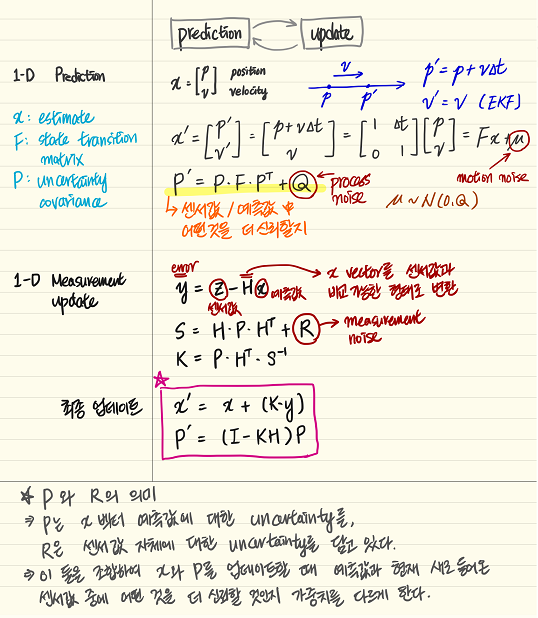 prediction update
1-D Prediction
x = [p v] position velocity
v
p p'
p' = p + vΔt
v' = v (EKF)
x: estimate
F: state transition matrix
P: uncertainty covariance
x' = [p' v'] = [p+vΔt v] = [1 Δt 0 1][p v] = Fx+μ
motion noise
P' = P·F·Pᵀ + Q
process noise
μ ~ N(0,Q)
↳ 센서값 / 예측값 中
어떤것을 더 신뢰할지
1-D Measurement update
error
y = z - Hx 예측값
센서값
x vector를 센서값과
비교 가능한 형태로 변환
S = H·P·Hᵀ + R
measurement noise
K = P·Hᵀ·S⁻¹
최종 업데이트
x' = x + (K·y)
P' = (I-KH)P
* P와 R의 의미
⇒ P는 x 벡터 예측값에 대한 uncertainty를,
R은 센서값 자체에 대한 uncertainty를 담고 있다.
⇒ 이 둘을 조합하여 x와 P를 업데이트할 때 예측값과 현재 새로 들어온
센서값 중에 어떤 것을 더 신뢰할 것인지 가중치를 다르게 한다.